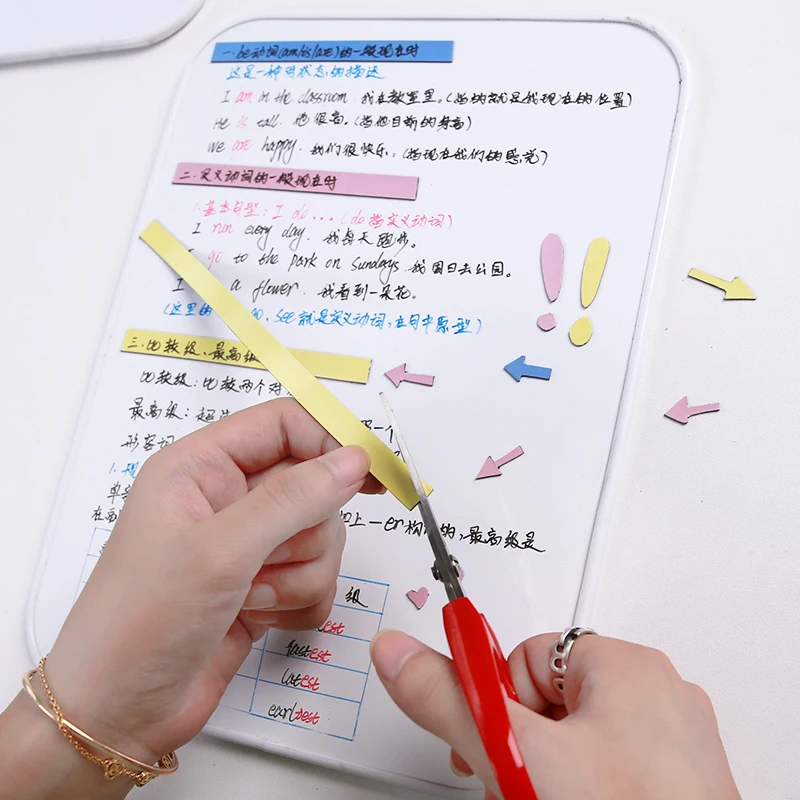 一.be动词(am/is/are)的一般现在时
这是一种对状态的描述
I am in the classroom. 我在教室里。(指的就是我现在的位置)
He is tall. 他很高。(指他目前的身高)
We are happy. 我们很快乐。(指现在我们的感觉)
二.实义动词的一般现在时
1.基本句型: I do...(do指实义动词)
I run every day. 我每天跑步。
I go to the park on Sundays. 我周日去公园。
I a flower. 我看到一朵花。
(这里的 go. see就是实义动词,在句中原型)
三.比较级、最高级
比较级:比较两个对
最高级:
形容词 一个
1.
单
在 加上-er构 的,最高级是
级
est
fastest
latest
earliest